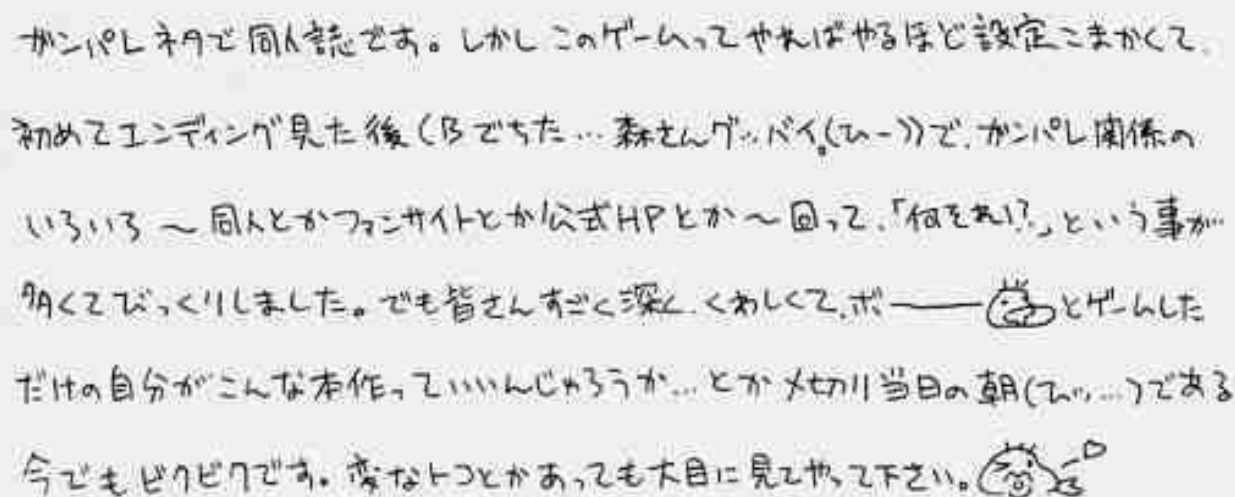 ガンパレネタで同人誌です。しかしこのゲームってやればやるほど設定こまかくて、
初めてエンディング見た後(Bでちた…森さんグッバイ。(ひー))で、ガンパレ関係の
いろいろ〜同人とかファンサイトとか公式HPとか〜回って、「何それ!?」という事が
多くてびっくりしました。でも皆さんすごく深く、くわしくて、ボ――とゲームした
だけの自分がこんな本作っていいんじゃろうか…とか〆切り当日の朝(ひぃ…)である
今でもビクビクです。変なトコとかあっても大目に見てやって下さい。